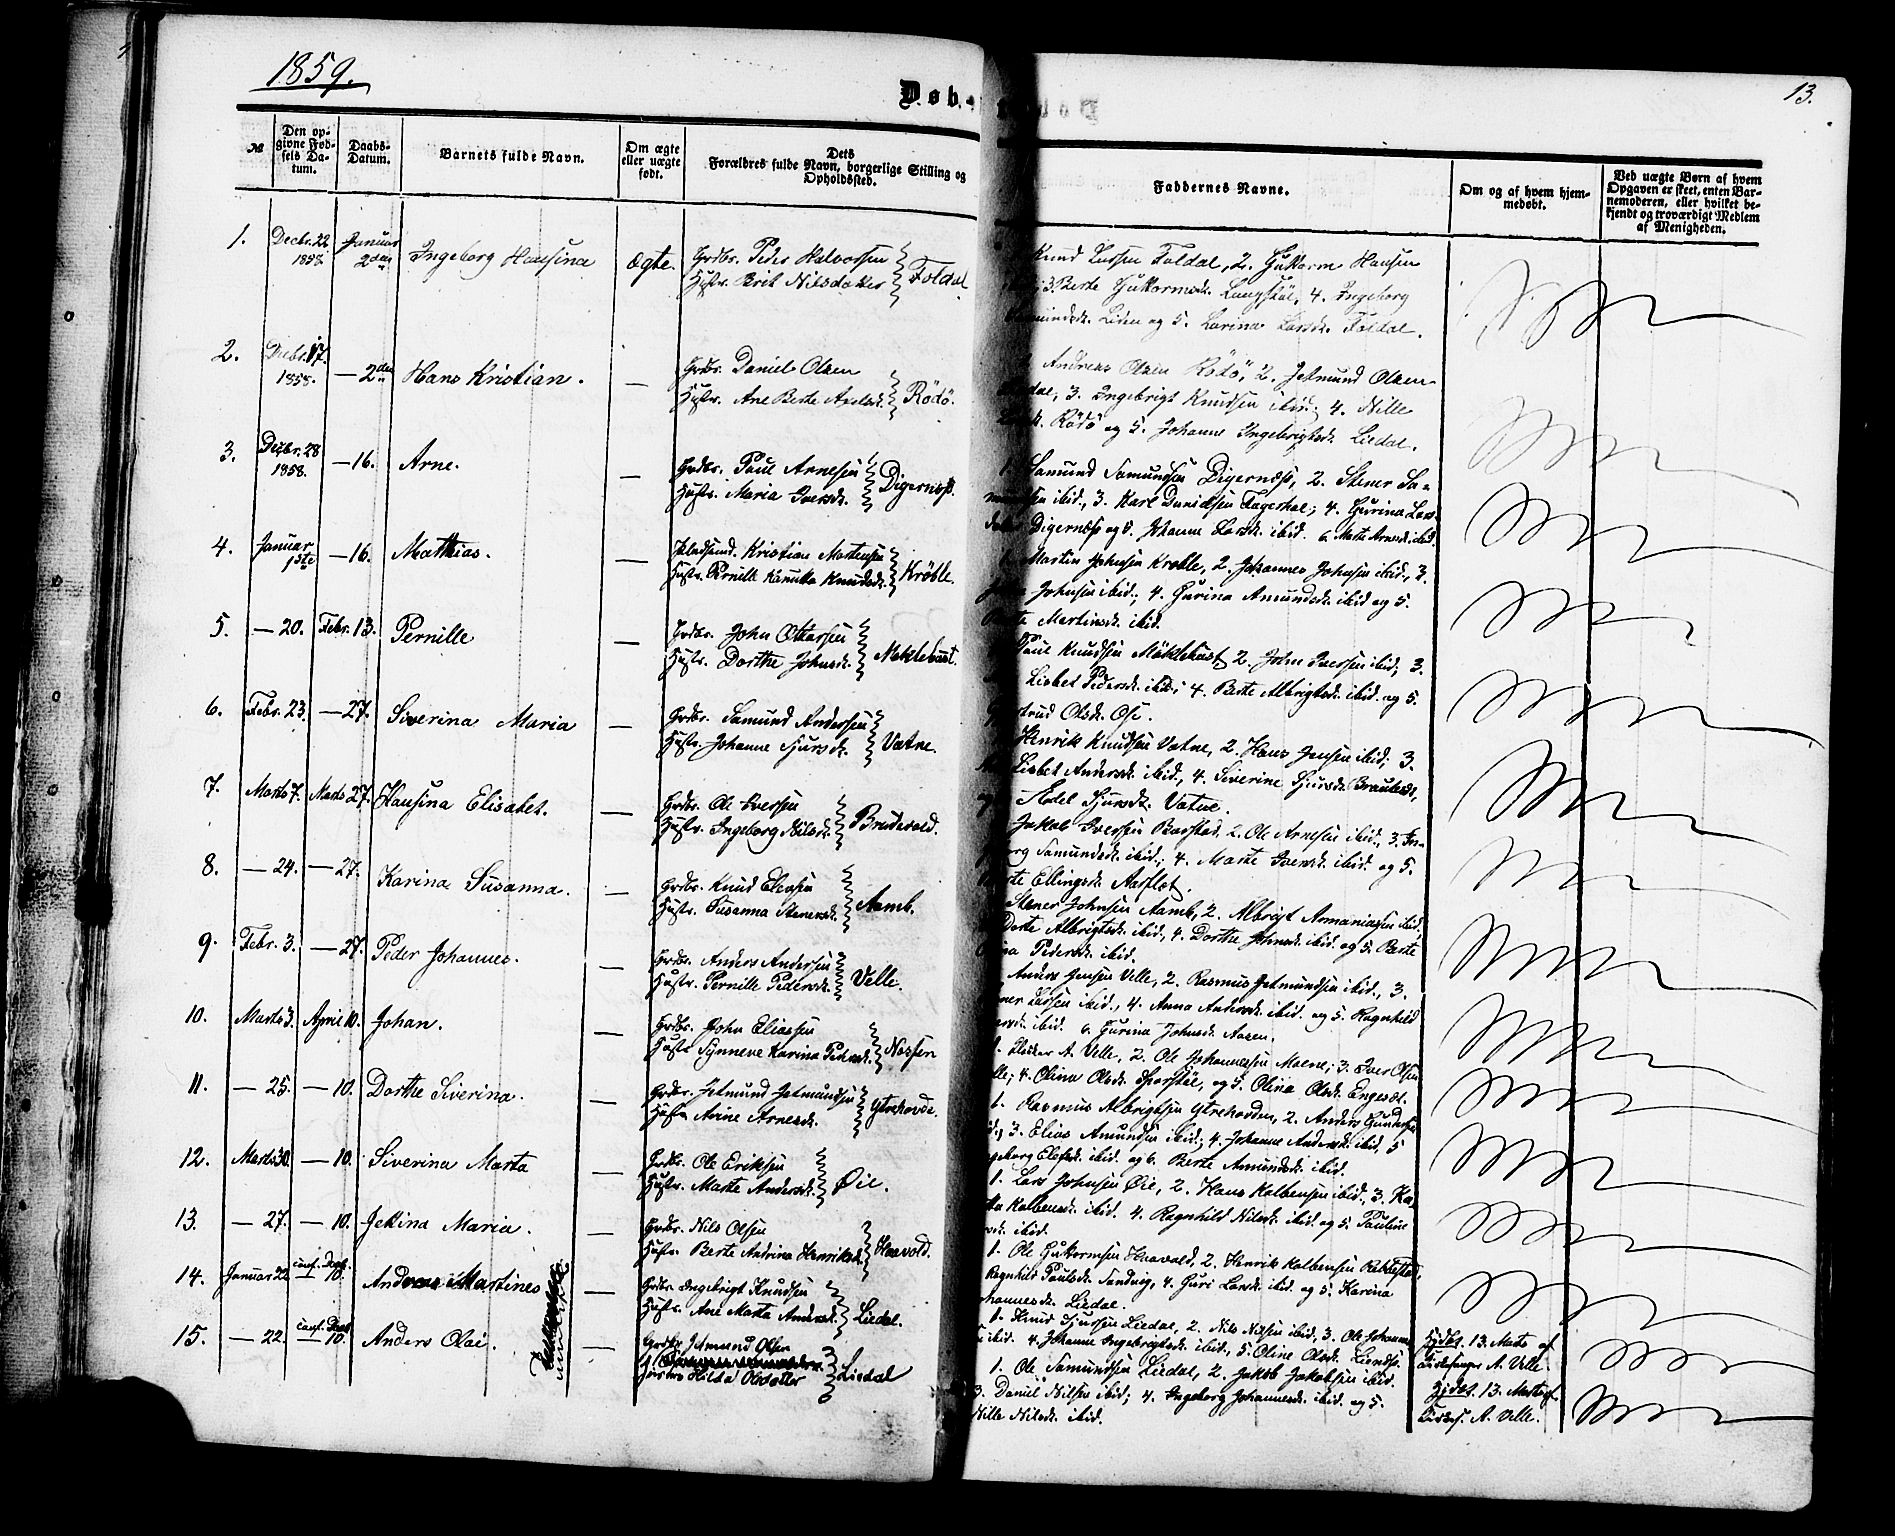 1859.
13.
Døb
№
Den op-
givne Fød-
sels Da-
tum.
Daabs-
Datum.
Barnets fulde Navn.
Om ægte
eller uægte
født.
Dets
Forældres fulde Navn, borgerlige Stilling og
Opholdssted.
Faddernes Navne.
Om og af hvem hjem-
medøbt.
Ved uægte Børn af hvem
Opgaven er skeet, enten Bar-
nemoderen, eller hvilket be-
kjendt og troværdigt Medlem
af Menigheden.
1. Decbr. 22 1858 Januar 2den Ingeborg Hansina Ægte. Grdbr. Peder Halvorsen
Hustr. Brit Nilsdatter Foldal
Knud Larsen Foldal, 2. Guttorm Hansen
3. Berte Guttormsd. Langstöl, 4. Ingeborg
Liden og 5. Larina Larsd. Foldal.
2. Decbr. 17. 1858. — 2den Hans Kristian. — Grdbr. Daniel Olsen
Hustr. Ane Berte Andersd. Rödö.
Andreas Olsen Rödö, 2. Jetmund Olsen
3. Ingebrigt Knudsen ibid; 4. Nille
Rödö og 5. Johanne Ingebrigtsd. Liedal.
3. Decbr. 28 1858. — 16. Arne. — Grdbr. Paul Arnesen
Hustr. Maria Iversd. Digernæs.
1. Samund Samundsen Digernæs, 2. Stener Sa-
mundsen ibid., 3. Karl Danielsen Fagerhol; 4. Gurina Lars-
datter Digernæs og 5. Johanne Larsd. ibid. 6. Marte Arnesd. ibid.
4. Januar 1ste — 16. Matthias. — Kristian Mortensen
Hustr. Pernille Knudsd. Krøvle.
1. Martin Johnsen Krøvle, 2. Johannes Johnsen ibid., 3.
Johnsen ibid.; 4. Gurina Amundsd. ibid og 5.
Martinsd. ibid.
5. — 20. Febr. 13. Pernille — Grdbr. John Ottersen
Hustr. Dorthe Johnsd. Möklebust.
Paul Knudsen Möklebust, 2. John Iversen ibid; 3.
Lisbet Pedersd. ibid; 4. Berte Albrigtsd. ibid. og 5.
Olsd. Ose.
6. Febr. 23. — 27. Siverina Maria — Grdbr. Samund Andersen
Hustr. Johanne Sjursd. Vatne.
Henrik Knudsen Vatne, 2. Hans Jensen ibid; 3.
Lisbet Andersd. ibid., 4. Siverine Sjursd.
Sjursd. Vatne.
7. Marts 7. Marts 27. Hansina Elisabet. — Grdbr. Ole Iversen
Hustr. Ingeborg Nilsd. Brudevold.
Jakob Iversen Barstad, 2. Ole Arnesen ibid., 3. In-
Samundsd. ibid.; 4. Marte Iversd. ibid. og 5.
Ellingsd. Aarflot.
8. — 24. — 27. Karina Susanna. — Grdbr. Knud
Hustr. Susanna Stenersd. Aamb.
Stener Johnsen Aamb, 2. Albrigt ibid,
Dorte Albrigtsd. ibid., 4. Dorthe Johnsd. ibid. og 5. Berte
Pedersd. ibid.
9. Febr. 3. — 27. Peder Johannes. — Grdbr. Anders Andersen
Hustr. Pernille Pedersd. Velle.
Anders Jensen Velle, 2. Rasmus Jetmundsen ibid., 3.
ibid., 4. Anna Andersd. ibid. og 5. Ragnhild
ibid. 6. Gurina Johnsd. Aasen.
10. Marts 3. April 10. Johan. — Grdbr. John Eliassen
Hustr. Synneve Karina Pedersd. Nossen
1. A. Velle, 2. Ole Johannessen Moene; 3. Iver Olsen
4. Olina Olsd. Sporstöl, og 5. Olina Olsd. Engeset.
11. — 25. — 10. Dorthe Siverina. — Grdbr. Jetmund Jetmundsen
Hustr. Anne Arnesd. Ytrehovde.
1. Rasmus Albrigtsen Ytrehovden, 2. Anders
3. Elias Amundsen ibid; 4. Johanne Andersd. ibid, 5
ibid. og 6. Berte Amundsd. ibid.
12. Marts 30. — 10. Siverina Marta — Grdbr. Ole Eriksen
Hustr. Marte Andersd. Øie.
1. Lars Johnsen Øie, 2. Hans Kolbensen ibid., 3.
Kolbensd. ibid. 4. Ragnhild Nilsd. ibid. og 5. Pauline
ibid.
13. — 27. — 10. Jekina Maria. — Grdbr. Nils Olsen
Hustr. Berte Andrina Henriksd. Haavold.
1. Ole Guttormsen Haavold, 2. Henrik Kolbensen Rekkestad,
Ragnhild Paulsd. Sandvig, 4. Guri Larsd. ibid. og 5. Karina
Liedal.
14. Januar 22. conf. Daab — 10. Andreas Martines — Grdbr. Ingebrigt Knudsen
Hustr. Ane Marta Andersd. Liedal.
1. Knud Sjursen Liedal, 2. Nils Nilsen ibid, 3. Ole
ibid. 4. Johanne Ingebrigtsd. ibid., 5. Oline Olsd.
Hjdbt. 13. Marts af
Kirkesanger A. Velle.
15. — 22. conf. Daab — 10. Anders Olai. — Grdbr. Jetmund Olsen
Hustru Hilda Olsdatter Liedal
1. Ole Samundsen Liedal, 2. Jakob Jakobsen ibid.
3. Daniel Nilsen ibid; 4. Ingeborg Johannesd. ibid. og 5.
Nille Nilsd. ibid.
Hjdbt. 13. Marts af
Kirkes. A. Velle.